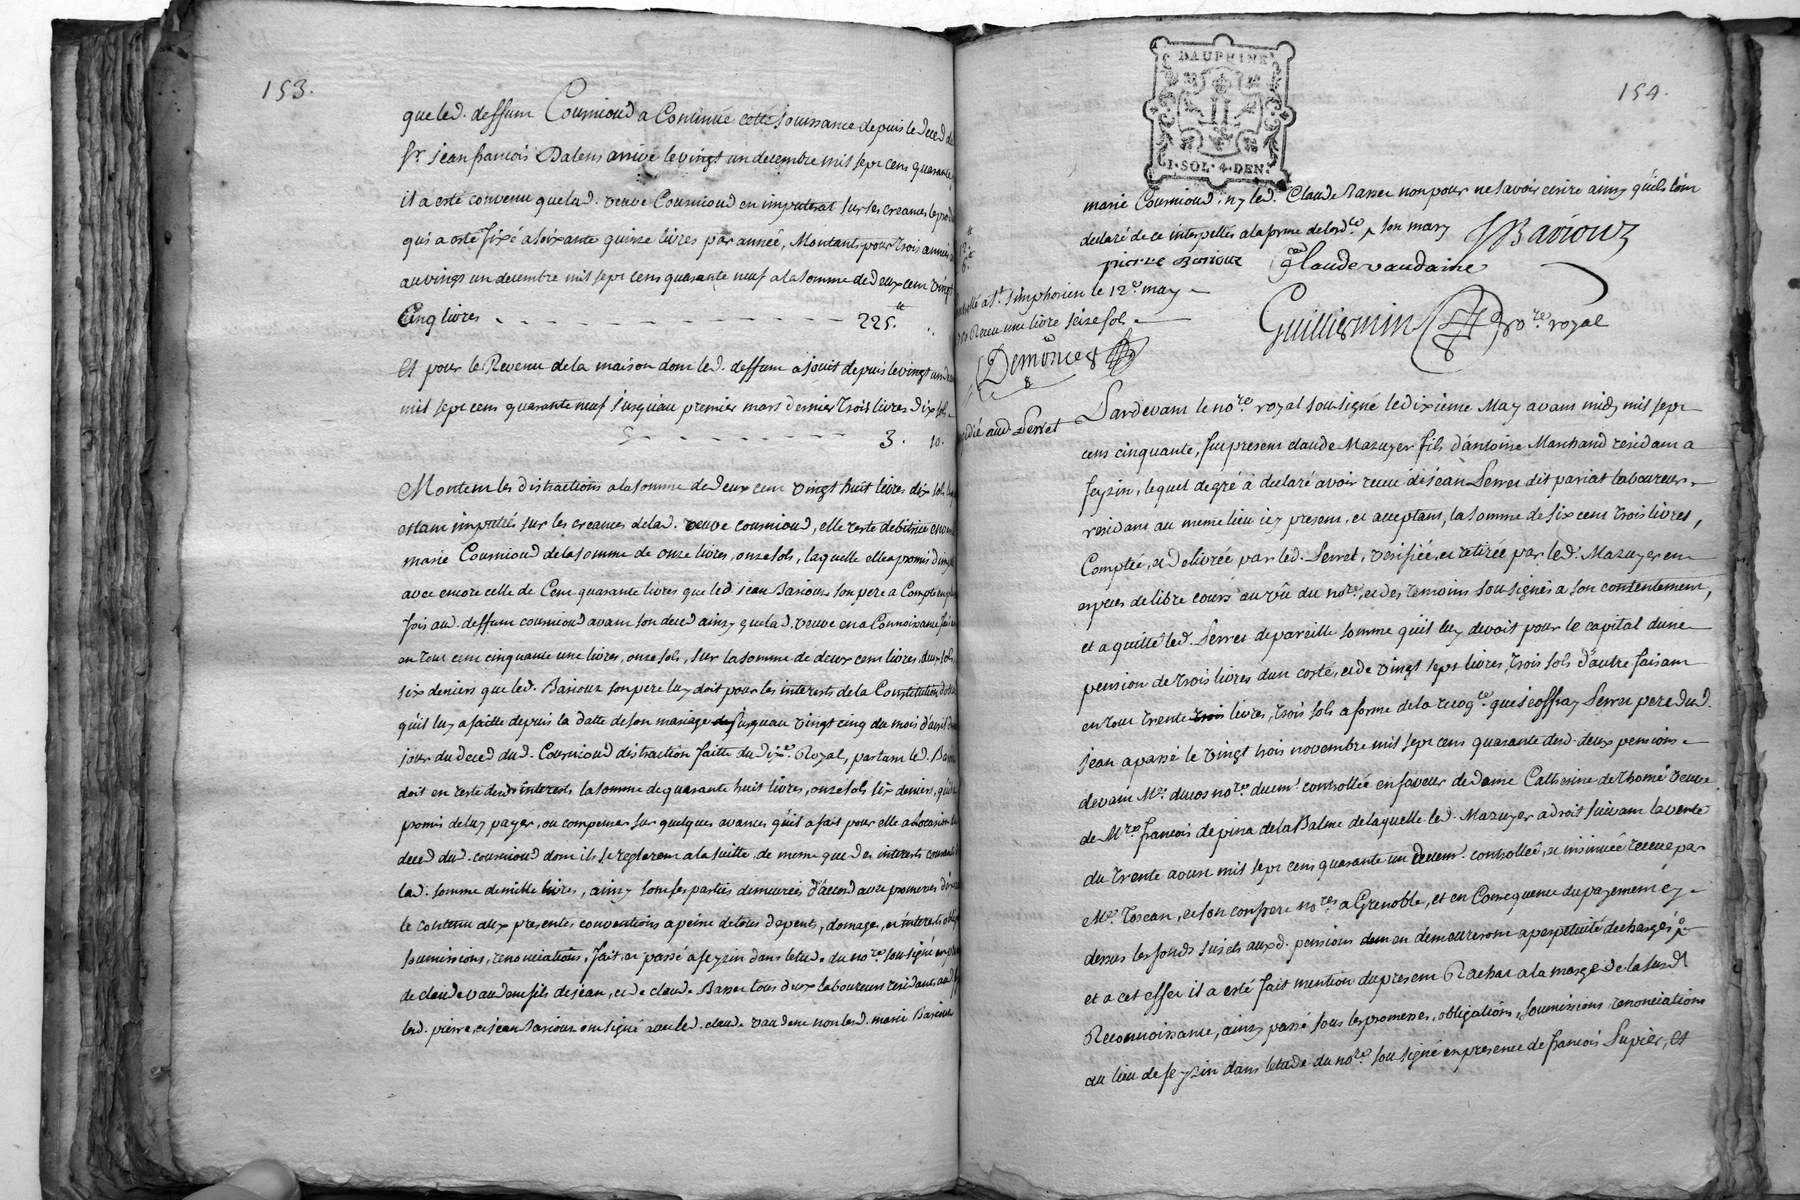 153.
que led. deffunt Cournioud a Continué cette Jouissance depuis le deced de
Sr. jean francois Dalens arrivé le vingt un decembre mil sept cens quarante
il a esté convenu que lad. veuve Cournioud en imputerat sur ses creances le prod
qui a esté fixé a soixante quinze livres par année, Montant pour trois années
au vingt un decembre mil sept cens quarante neuf a la somme de deux cent vingt
Cinq livres 225.tt
Et pour le Revenu de la maison dont led. deffunt a jouit depuis le vingt un
mil sept cens quarante neuf Jusqu'au premier mars dernier trois livres dix sols
3. 10.
Montent les distractions a la somme de deux cent vingt huit livres dix sols
estant imputés sur les creances de lad. veuve cournioud, elle reste debitrice
marie Cournioud de la somme de onze livres, onze sols, laquelle elle a promis
avec encore celle de Cent quarante livres que led. jean Barioux son pere a Compté
fois aud. deffunt cournioud avant son deced ainsy que lad. veuve en a Connoissance
en tout cent cinquante une livres, onze sols, sur la somme de deux cent livres, deux sols
six deniers que led. Barioux son pere luy doit pour les interests de la Constitution
qu'il luy a faitte depuis la datte de son mariage Jusqu'au vingt cinq du mois d'avril
jour du deced dud. Cournioud distraction faitte du dixe. Royal, partant led.
doit en reste desd. interests la somme de quarante huit livres, onze sols six deniers,
promis de luy payer, ou compenser sur quelques avances qu'il a fait pour elle a l'occasion
deced dud. cournioud dont ils se regleront a la suitte, de meme que des interests
lad. somme de mille livres, ainsy sont ses parties demeurées d'accord avec promesses
le contenu aux presentes conventions a peine de tous depents, domages, et interests
soumissions, renonciations, fait et passé a feyzin dans l'etude du nore. sousigné
de claude vaudene fils de jean, et de claude Basset tous deux laboureurs residants
led. pierre, et jean Barioux ont signé avec led. claude vaudene non led. marie
154.
DAUPHINE
II
1·SOL·4·DEN.
marie Cournioud, ny led. Claude Basset non pour ne savoir ecrire ainsy qu'ils l'ont
declaré de ce interpellés a la forme de l'ordce. son mary JBarioux
pierre Barioux Claude vaudaine
a St. Simphorien le 12e may
Receu une livre seize sols
Guilliermin nore. royal
Demonce
aud. Serret
Pardevant le nore. royal sousigné le dixieme May avant midy mil sept
cens cinquante, fut present claude Mazuyer fils d'antoine Marchand residant a
feyzin, lequel de gré a declaré avoir receu de jean Serret dit pariat laboureur
residant au meme lieu icy present, et acceptant, la somme de six cent trois livres,
Comptée, et delivrée par led. Serret, verifiée, et retirée par led. Mazuyer en
especes de libre cours au vû du nore., et des temoins sousignés a son contentement,
et a quitté led. Serret de pareille somme qu'il luy devoit pour le capital d'une
pension de trois livres d'un costé, et de vingt sept livres, trois sols d'autre faisant
en tout trente trois livres, trois sols a forme de la recogce. que jeoffray Serret pere dud.
jean a passé le vingt trois novembre mil sept cens quarante desd. deux pensions
devant Me. ducros nore. duemt. controllée en faveur de dame Catherine de Thomé veuve
de Mre. francois de pina de la Balme de laquelle led. Mazuyer a droit suivant la vente
du trente aoust mil sept cens quarante un duemt. controllée, et insinuée receue par
Me. Toscan, et son confrere nores. a Grenoble, et en Consequence du payement cy
dessus les fonds sujets auxd. pensions en demeureront a perpetuité dechargés
et a cet effet il a esté fait mention du present Rachat a la marge de la susd.
Reconnoissance, ainsy passé sous les promesses, obligations, soumissions, renonciations
au lieu de feyzin dans l'etude du nore. sousigné en presence de francois Supier, et